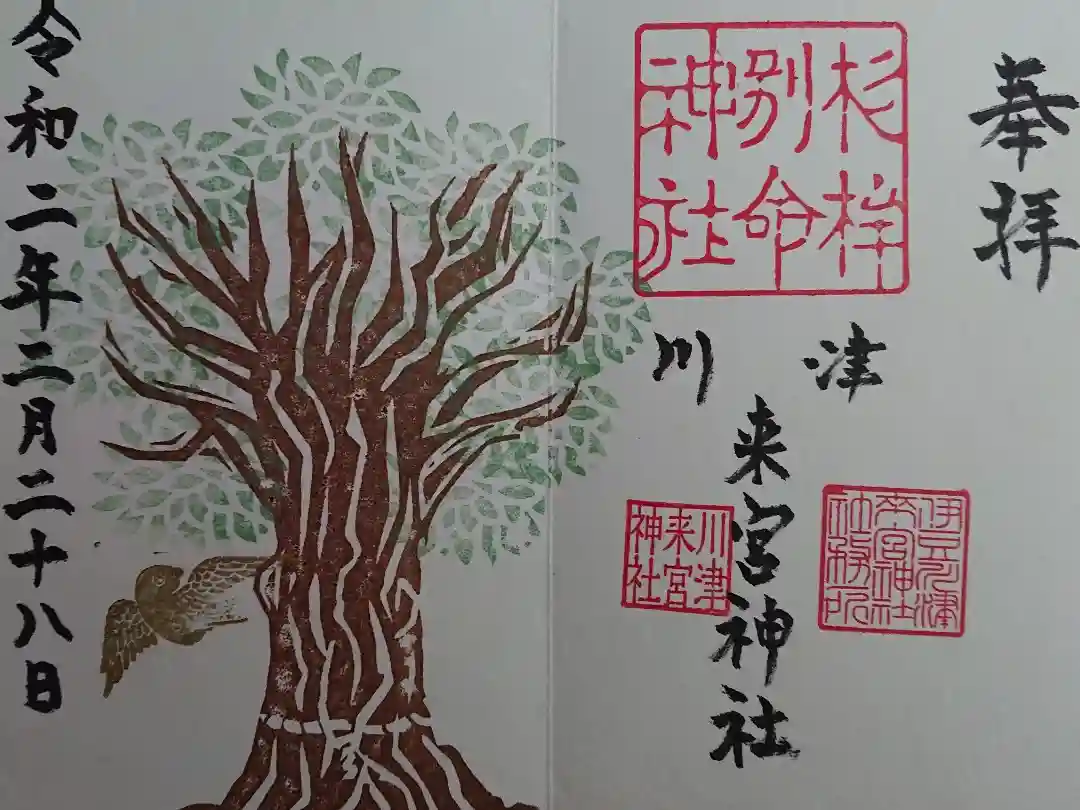 奉拝
杉桙
別命
神社
川津
来宮神社
川津
来宮
神社
来宮神社
社務所
令和二年三月二十八日